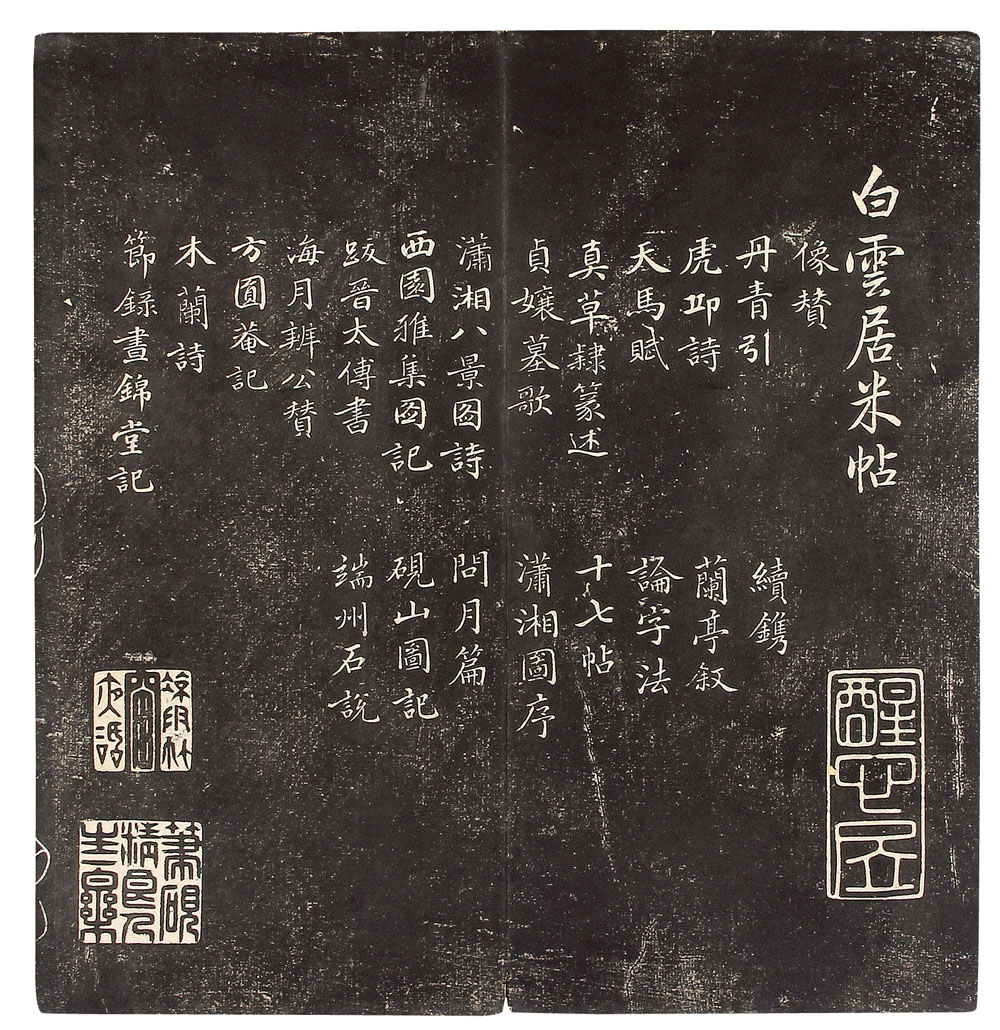 白雲居米帖
像贊
丹青引
虎邱詩
天馬賦
真草隸篆述
貞孃墓歌
瀟湘八景圖詩
西園雅集圖記
跋晉太傅書
海月辨公贊
方圓菴記
木蘭詩
節錄晝錦堂記
續鐫
蘭亭叙
論字法
十七帖
瀟湘圖序
問月篇
硯山圖記
端州石說